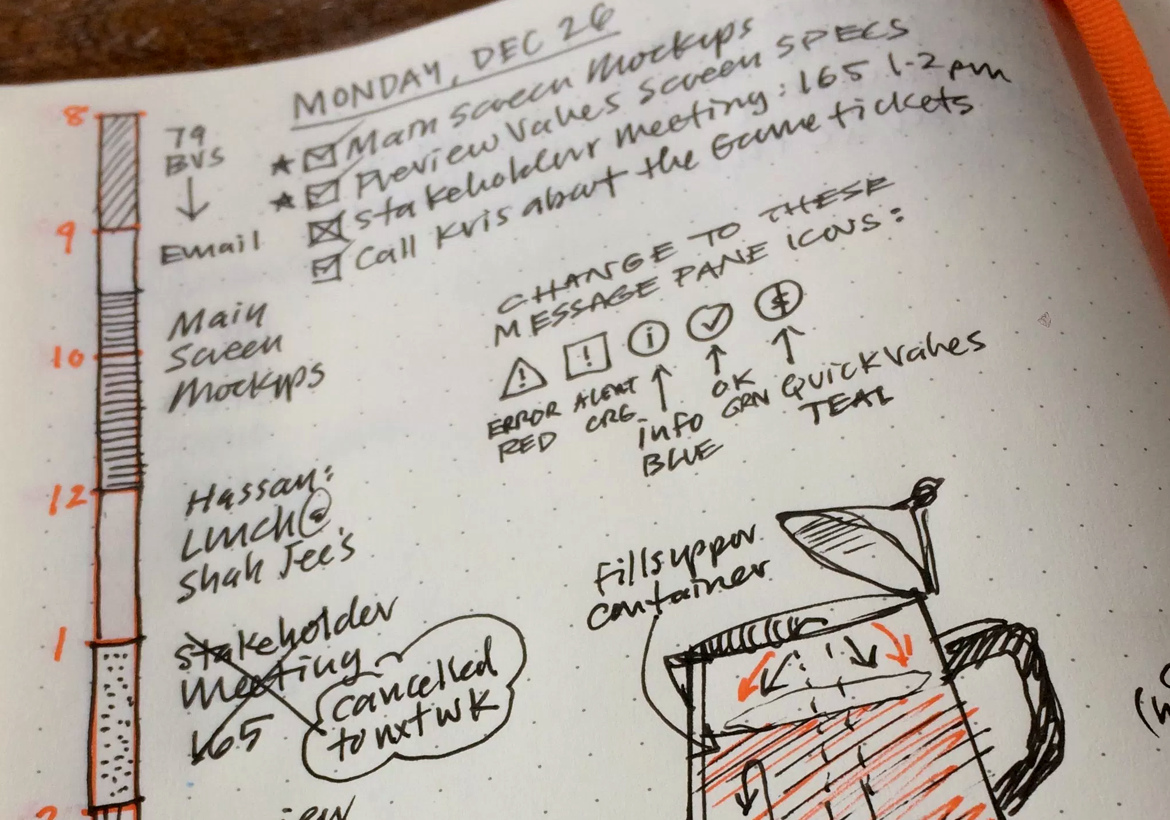 MONDAY, DEC 26
Main Screen Mockups
Preview Values Screen SPECS
Stakeholder Meeting: 165 1-2 pm
Call Kris about the Game tickets
8
79
BVS
Email
9
Main
Screen
Mockups
10
12
Hassan:
Lunch@
Shah Jee's
1
Stakeholder
Meeting
165
cancelled
to nxt wk
CHANGE TO THESE
MESSAGE PANE ICONS:
! ! i $
ERROR
RED
ALERT
ORG
info
BLUE
OK
GRN
Quick Values
TEAL
Fills upper
container
2